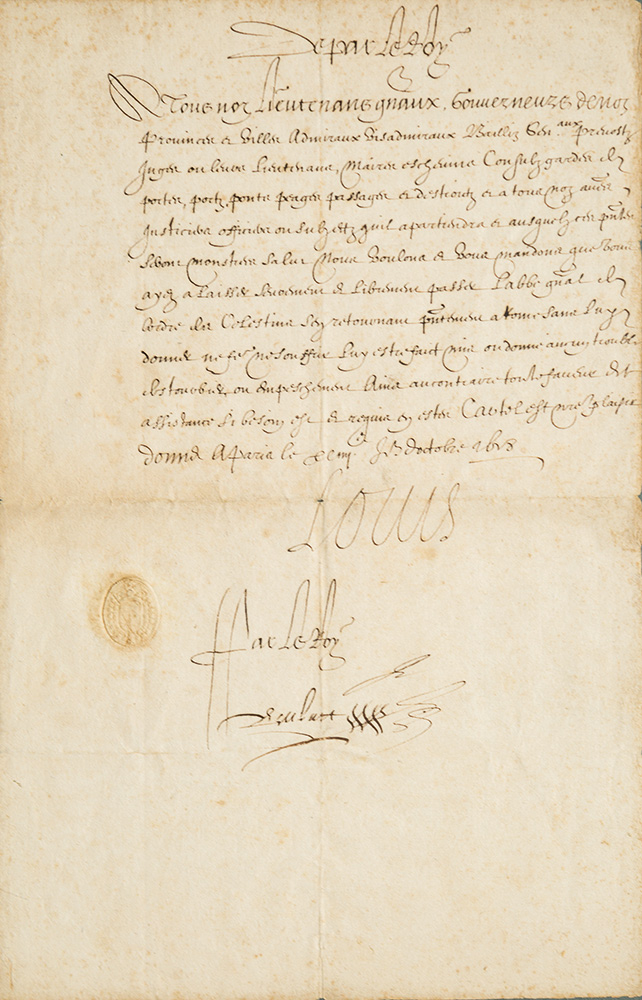 De par le Roy
A Tous noz Lieutenans gnaux, Gouverneurs de noz
Provinces et villes Admiraux visadmiraux Baillis Sen.aux prevostz
Juges ou leurs lieutenans, Maires eschevins Consulz gardes de
portes, portz, pontz peages passages et destroictz et a tous noz autres
Justiciers officiers ou subjetz quil apartiendra et ausquelz ces pntes
seront monstrees salut Nous voulons et vous mandons que vous
ayez a laisser seurement et librement passer Labbe gnal de
lordre des Celestins sen retournant pntement a Rome sans luy
donner ne fe ne souffrir luy estre faict mis ou donne aucun trouble
destourbier ou empeschement Ains au contraire toute faveur et
assistance si besoin est et requis en estes Car tel est nre plaisir
donné A Paris le Jor doctobre 1618
Louis
Par le Roy